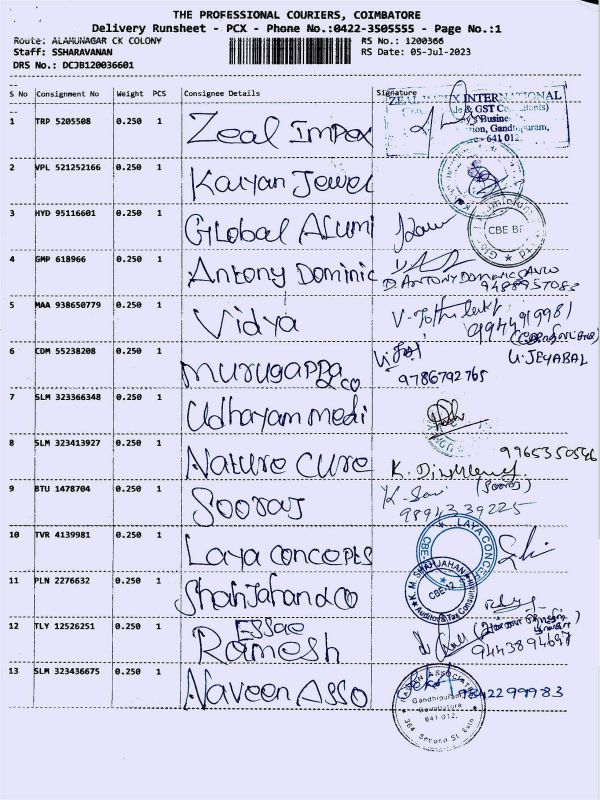 THE PROFESSIONAL COURIERS, COIMBATORE
Delivery Runsheet - PCX - Phone No.:0422-3505555 - Page No.:1
Route: ALAMUNAGAR CK COLONY RS No.: 1200366
Staff: SSHARAVANAN RS Date: 05-Jul-2023
DRS No.: DCJB120036601
S No Consignment No Weight PCS Consignee Details Signature
1 TRP 5205508 0.250 1 Zeal Impex
ZEAL IMPEX INTERNATIONAL
& GST
Busine
Gandhipuram,
641 012
2 VPL 521252166 0.250 1 Kalyan Jewel
3 HYD 95116601 0.250 1 Global Alumi
CBE BF
4 GMP 618966 0.250 1 Antony Dominic
D. ANTONY DOMINIC
5 MAA 938650779 0.250 1 Vidya
9944919981
6 CDM 55238208 0.250 1 Murugappa & co
U. JEYABAL
9786792765
7 SLM 323366348 0.250 1 Udhayam medi
8 SLM 323413927 0.250 1 Nature Cure
9965350546
9 BTU 1478704 0.250 1 Sooraj
9894339225
10 TVR 4139981 0.250 1 Laya Concepts
LAYA CONCE
CBE
11 PLN 2276632 0.250 1 Shah Jahan & co
K. M. SHAHJAHAN
CBE-12
Auditor & Tax Consultant
12 TLY 12526251 0.250 1 Essae
Ramesh
9443894697
13 SLM 323436675 0.250 1 Naveen Asso
9842299983
Gandhipuram
Coimbatore
641 012.
364